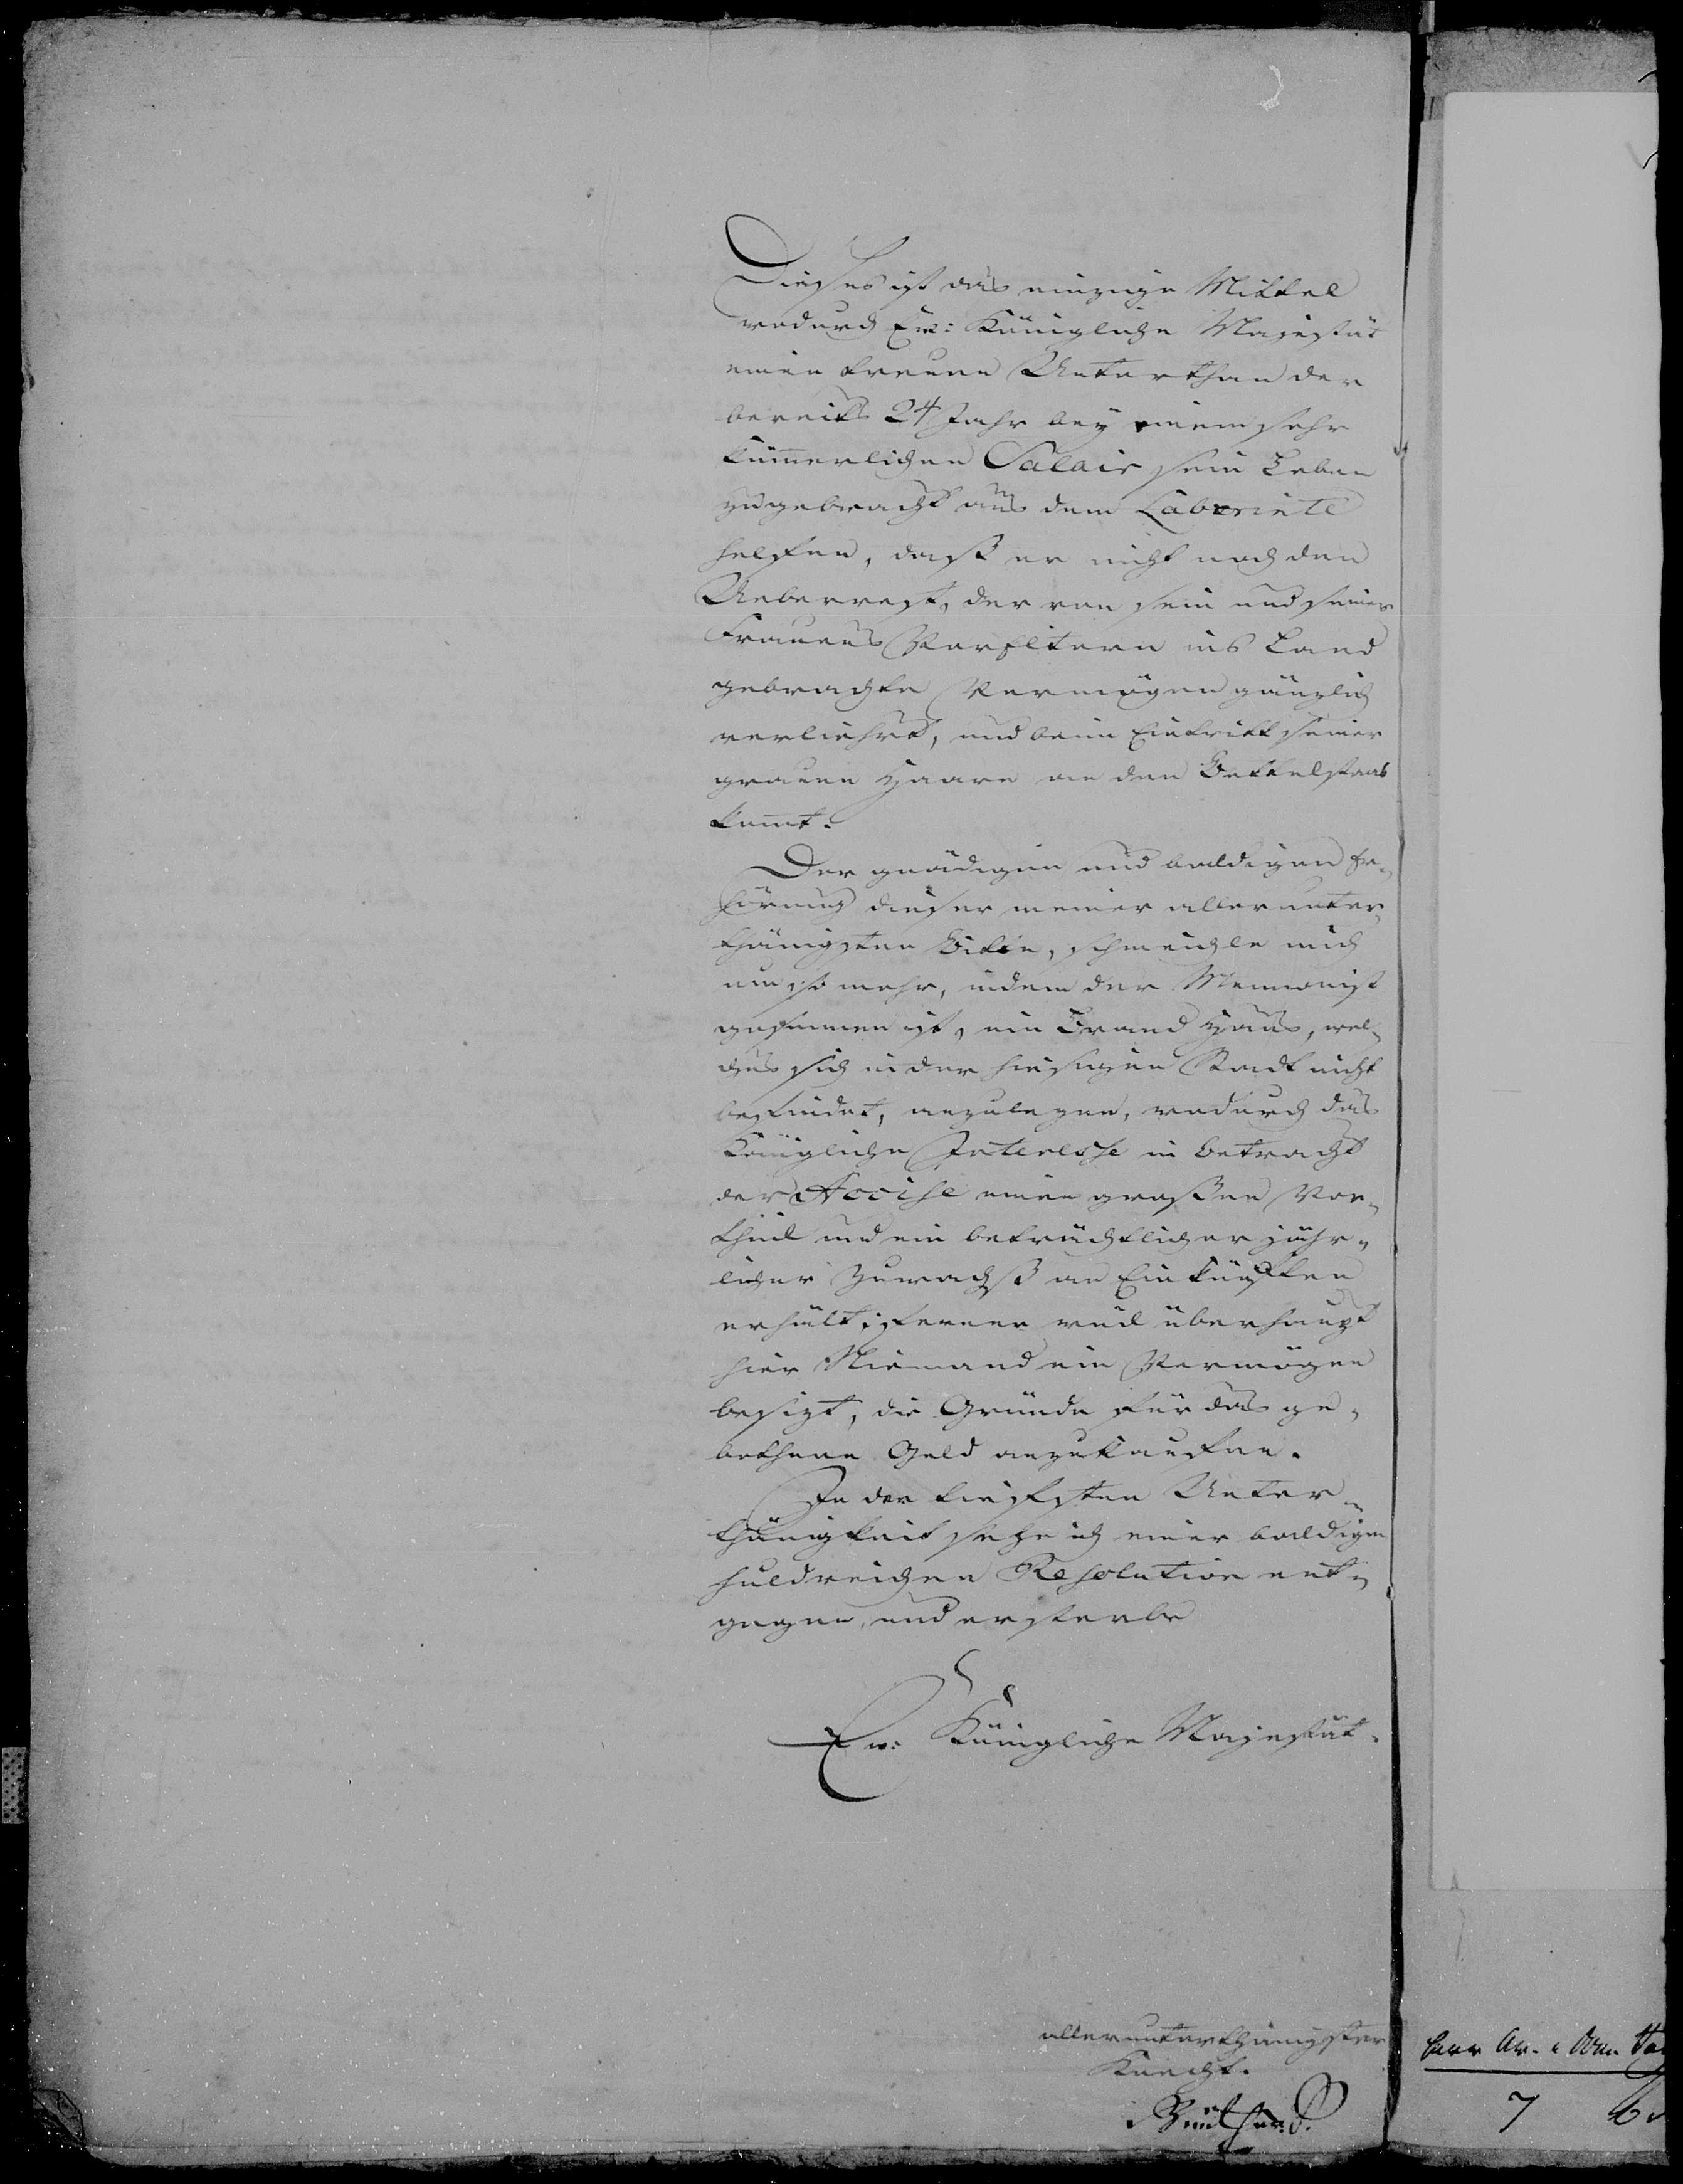 Dieses ist das einzige Mittel
wodurch Ew: Königliche Majestät
einen treuen Unterthan der
bereits 24 Jahr bey einem sehr
kümerlichen Salair sein Leben
zugebracht aus dem Laberinte
helfen, daß er nicht noch den
Ueberrest, der von sein und seiner
Frauens Vorfeltern ins Land
gebrachte Vermögen gänzlich
verliehrt, und beim Eintritt seiner
grauen Haare an den Bettelstaab
komt.
Der gnädigen und baldigen Er-
hörung dieser meiner allerunter-
thänigsten Bitte, schmeichle mich
um so mehr, indem der Mennonist
gesonnen ist, ein Brand Haus, wel-
ches sich in der hiesigen Stadt nicht
befindet, anzulegen, wodurch das
Königliche Interesse in Betracht
der Accise einen großen Vor-
theil und ein beträchtlicher jähr-
licher Zuwachß an Einkünften
erhält; ferner weil überhaupt
hier Niemand ein Vermögen
besizt, die Gründe für das ge-
bothene Geld anzukaufen.
In der tiefsten Unter-
thänigkeit sehe ich einer baldigen
huldreichen Resolution ent-
gegen, und ersterbe
Ew: Königliche Majestät.
allerunterthänigster
Knecht.
7